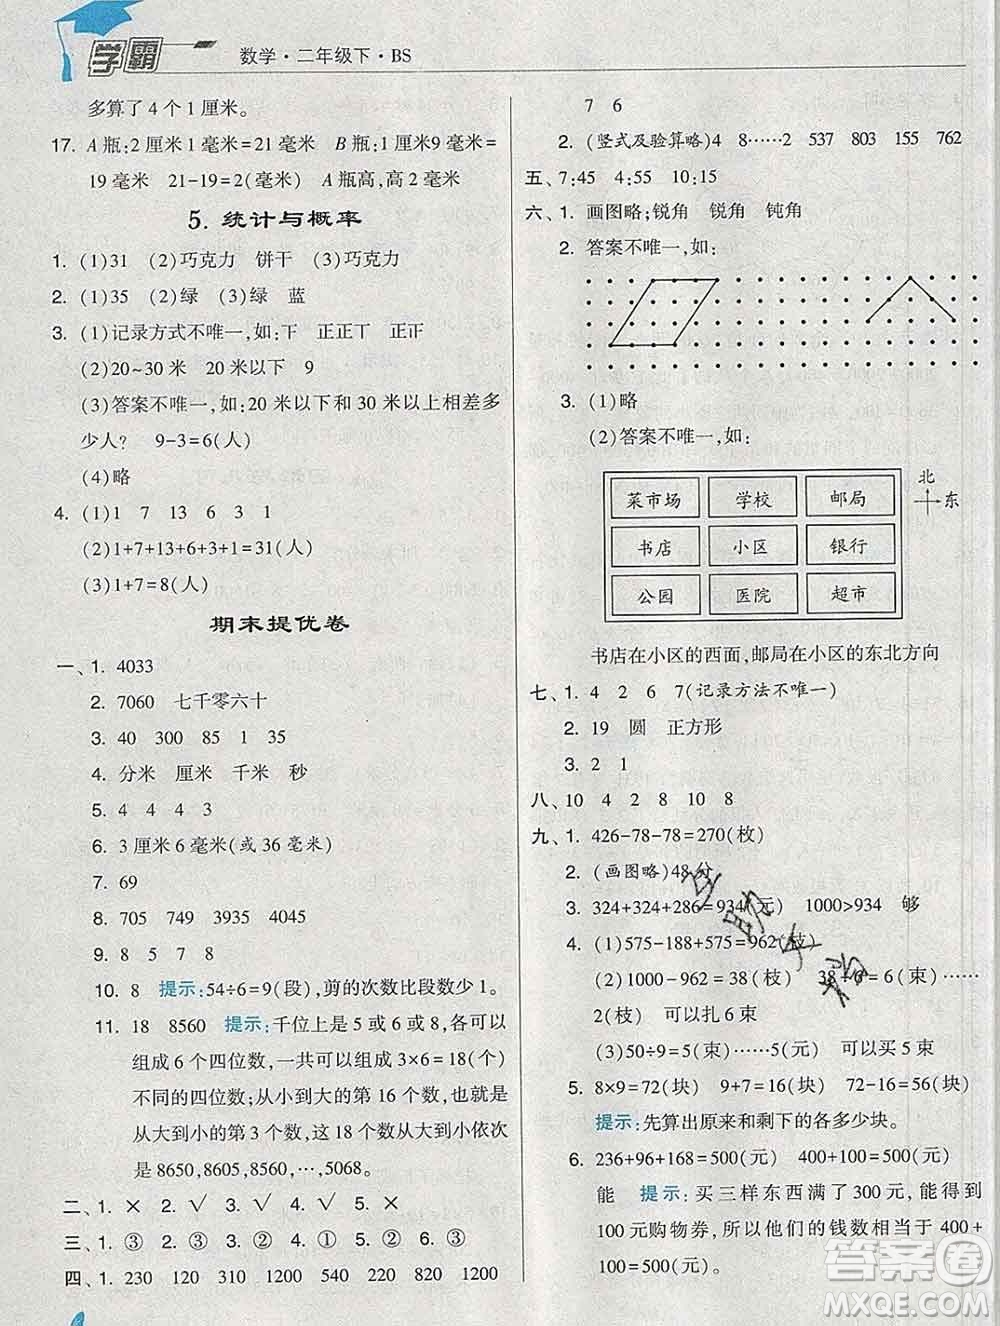 学霸
数学·二年级下·BS
多算了4个1厘米。
17. A瓶:2厘米1毫米=21毫米 B瓶:1厘米9毫米=
19毫米 21-19=2(毫米) A瓶高,高2毫米
5. 统计与概率
1. (1)31 (2)巧克力 饼干 (3)巧克力
2. (1)35 (2)绿 (3)绿 蓝
3. (1)记录方式不唯一,如:
(2)20~30米 20米以下 9
(3)答案不唯一,如:20米以下和30米以上相差多
少人? 9-3=6(人)
(4)略
4. (1)1 7 13 6 3 1
(2)1+7+13+6+3+1=31(人)
(3)1+7=8(人)
期末提优卷
一、1. 4033
2. 7060 七千零六十
3. 40 300 85 1 35
4. 分米 厘米 千米 秒
5. 4 4 4 3
6. 3厘米6毫米(或36毫米)
7. 69
8. 705 749 3935 4045
9. 8 5 7 8
10. 8 提示:54÷6=9(段),剪的次数比段数少1。
11. 18 8560 提示:千位上是5或6或8,各可以
组成6个四位数,一共可以组成3×6=18(个)
不同的四位数;从小到大的第16个数,也就是
从大到小的第3个数,这18个数从大到小依次
是8650,8605,8560,…,5068。
二、1. × 2. √ 3. √ 4. √ 5. ×
三、1. ③ 2. ③ 3. ② 4. ① 5. ② 6. ③
四、1. 230 120 310 1200 420 800 1200
7 6
2. (竖式及验算略)4 8……2 537 803 155 762
五、7:45 4:55 10:15
六、1. 画图略;锐角 锐角 钝角
2. 答案不唯一,如:
3. (1)略
(2)答案不唯一,如:
菜市场 学校 邮局
书店 小区 银行
公园 医院 超市
北
东
书店在小区的西面,邮局在小区的东北方向
七、1. 4 2 6 7(记录方法不唯一)
2. 19 圆 正方形
3. 2 1
八、10 4 2 8 10 8
九、1. 426-78-78=270(枚)
2. (画图略)48分
3. 324+324+286=934(元) 1000>934 够
4. (1)575-188+575=962(枝)
(2)1000-962=38(枝) 38÷6=6(束)……
2(枝) 可以扎6束
(3)50÷9=5(束)……5(元) 可以买5束
5. 8×9=72(块) 9+7=16(块) 72-16=56(块)
提示:先算出原来和剩下的各多少块。
6. 236+96+168=500(元) 400+100=500(元)
能 提示:买三样东西满了300元,能得到
100元购物券,所以他们的钱数相当于400+
100=500(元)。
答案圈
MXQE.COM